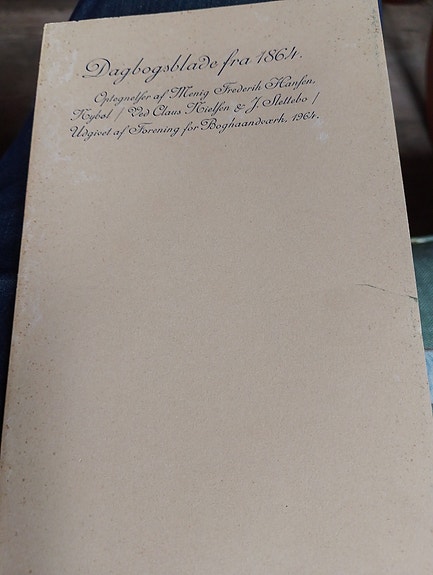 Dagbogsblade fra 1864.
Optegnelser af Menig Frederik Hansen,
Nybøl / Ved Claus Nielsen & J. Slettebo /
Udgivet af Forening for Boghaandværk, 1964.